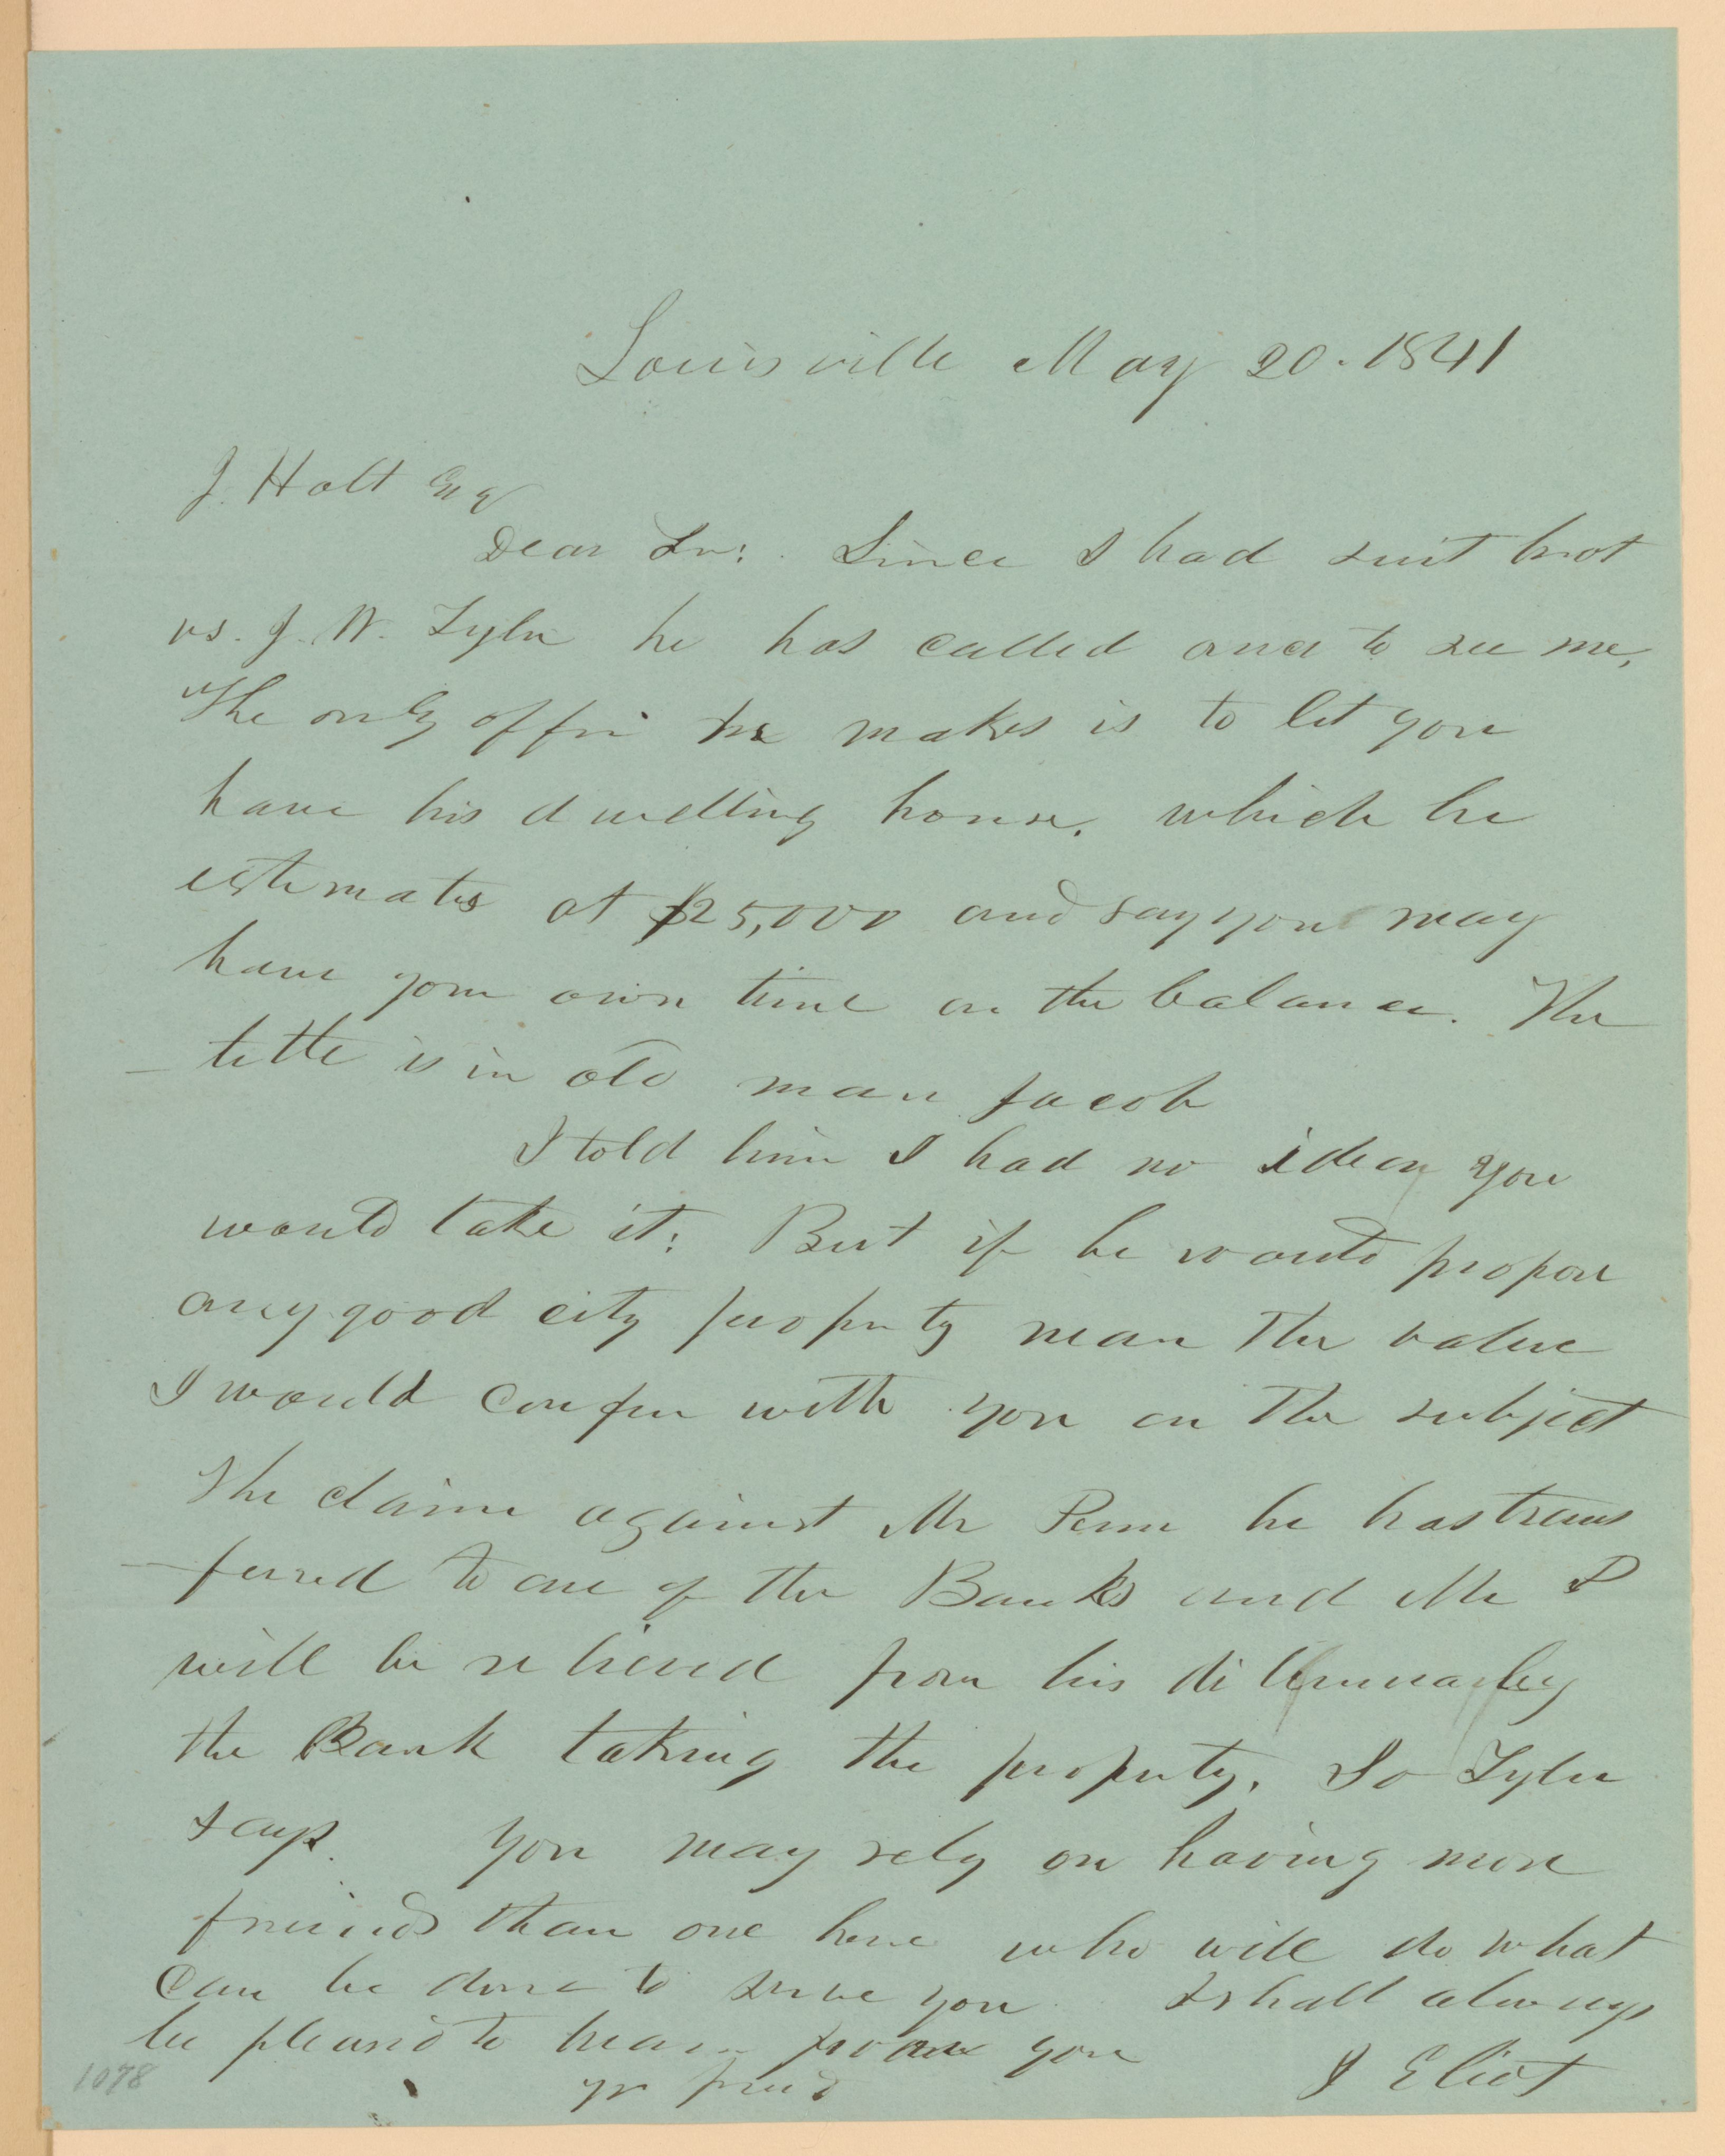 Louisville May 20. 1841
J. Holt Esq
Dear Sir: Since I had suit brot
vs. J. W. Tyler he has called once to see me,
The only offer he makes is to let you
have his dwelling house, which he
estimates at $25,000 and says you may
have your own time on the balance. The
title is in old man Jacob
I told him I had no idea you
would take it: But if he would propose
any good city property near the value
I would confer with you on the subject
The claim against Mr Penn he has trans
ferred to one of the Banks and Mr P
will be relieved from his dilemma by
the Bank taking the property, So Tyler
says. You may rely on having more
friends than one here who will do what
can be done to serve you I shall always
be pleased to hear from you
yr friend J Eliot
1078